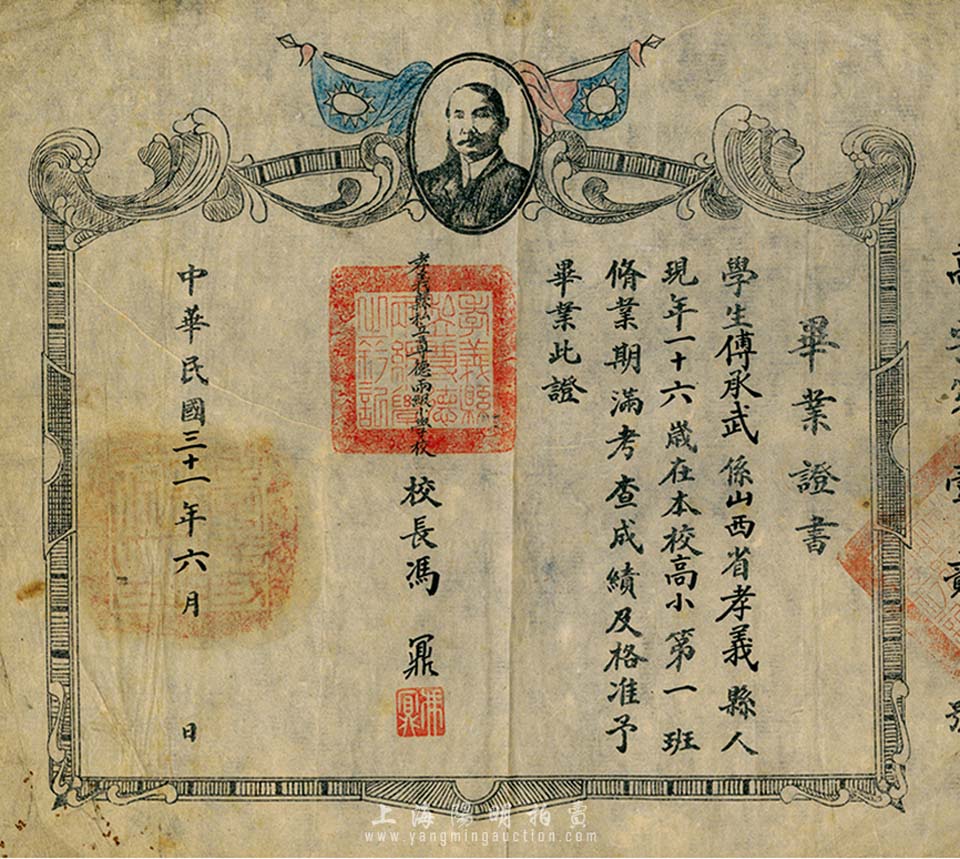 畢業證書
學生傅承武係山西省孝義縣人
現年一十六嵗在本校高小第一班
脩業期滿考查成績及格准予
畢業此證
孝義縣私立尊德兩級小學校 校長馮鼏
中華民國三十一年六月 日
上海陽明拍賣
www.yangmingauction.com